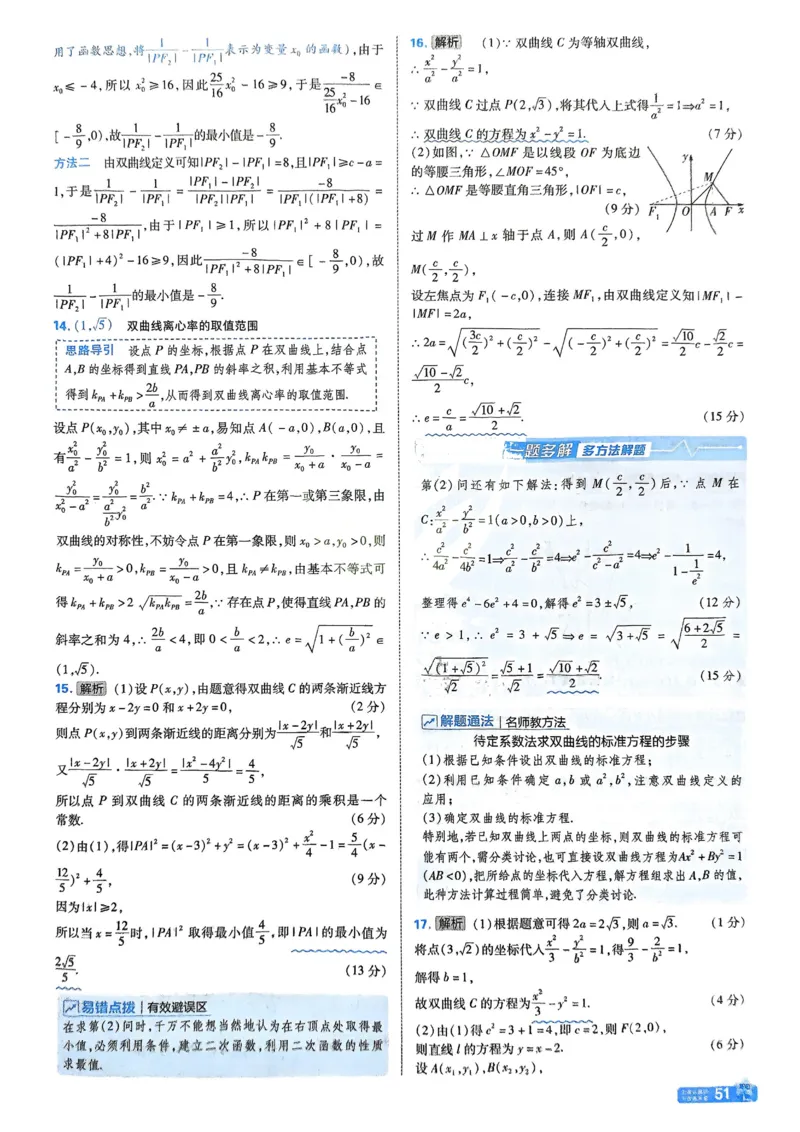 用了函数思想,将1/|PF₂| - 1/|PF₁|表示为变量x₀的函数),由于
x₀≤-4,所以x₀²≥16,因此25/16 x₀²-16≥9,于是-8/(25/16 x₀²-16)∈
[-8/9,0),故1/|PF₂| - 1/|PF₁|的最小值是-8/9.
方法二 由双曲线定义可知|PF₂|-|PF₁|=8,且|PF₁|≥c-a=
1,于是1/|PF₂| - 1/|PF₁| = (|PF₁|-|PF₂|)/(|PF₂||PF₁|) = -8/(|PF₁|(|PF₁|+8)) =
-8/(|PF₁|²+8|PF₁|),由于|PF₁|≥1,所以|PF₁|²+8|PF₁|=
(|PF₁|+4)²-16≥9,因此-8/(|PF₁|²+8|PF₁|)∈[-8/9,0),故
1/|PF₂| - 1/|PF₁|的最小值是-8/9.
14.(1,√5) 双曲线离心率的取值范围
思路导引 设点P的坐标,根据点P在双曲线上,结合点
A,B的坐标得到直线PA,PB的斜率之积,利用基本不等式
得到k_PA+k_PB>2b/a,从而得到双曲线离心率的取值范围.
设点P(x₀,y₀),其中x₀≠±a,易知点A(-a,0),B(a,0),且
有x₀²/a² - y₀²/b² = 1,则x₀²=a²+a²/b² y₀²,k_PA k_PB = y₀/(x₀+a) · y₀/(x₀-a) =
y₀²/(x₀²-a²) = y₀²/(a²/b² y₀²) = b²/a².∵k_PA+k_PB=4,∴P在第一或第三象限,由
双曲线的对称性,不妨令点P在第一象限,则x₀>a,y₀>0,则
k_PA=y₀/(x₀+a)>0,k_PB=y₀/(x₀-a)>0,且k_PA≠k_PB,由基本不等式可
得k_PA+k_PB>2√(k_PA k_PB)=2b/a,∵存在点P,使得直线PA,PB的
斜率之和为4,∴2b/a<4,即0<b/a<2,∴e=√(1+(b/a)²)∈
(1,√5).
15. 解析 (1)设P(x,y),由题意得双曲线C的两条渐近线方
程分别为x-2y=0和x+2y=0, (2分)
则点P(x,y)到两条渐近线的距离分别为|x-2y|/√5和|x+2y|/√5,
又|x-2y|/√5 · |x+2y|/√5 = |x²-4y²|/5 = 4/5,
所以点P到双曲线C的两条渐近线的距离的乘积是一个
常数. (6分)
(2)由(1),得|PA|²=(x-3)²+y²=(x-3)²+x²/4-1=5/4(x-
12/5)²+4/5, (9分)
因为|x|≥2,
所以当x=12/5时,|PA|²取得最小值4/5,即|PA|的最小值为
2√5/5. (13分)
易错点拨 | 有效避误区
在求第(2)问时,千万不能想当然地认为在右顶点处取得最
小值,必须利用条件,建立二次函数,利用二次函数的性质
求最值.
16. 解析 (1)∵双曲线C为等轴双曲线,
∴x²/a² - y²/a² = 1,
∵双曲线C过点P(2,√3),将其代入上式得1/a²=1⇒a²=1,
∴双曲线C的方程为x²-y²=1. (7分)
(2)如图,∵△OMF是以线段OF为底边
的等腰三角形,∠MOF=45°,
∴△OMF是等腰直角三角形,|OF|=c,
(9分)
y
M
F₁ O A F x
过M作MA⊥x轴于点A,则A(c/2,0),
M(c/2,c/2),
设左焦点为F₁(-c,0),连接MF₁,由双曲线定义知|MF₁|-
|MF|=2a,
∴2a=√((3c/2)²+(c/2)²)-√((-c/2)²+(c/2)²)=√10/2 c-√2/2 c=
(√10-√2)/2 c,
∴e=c/a=(√10+√2)/2. (15分)
一题多解 多方法解题
第(2)问还有如下解法:得到M(c/2,c/2)后,∵点M在
C:x²/a² - y²/b² = 1(a>0,b>0)上,
∴c²/4a² - c²/4b² = 1⇒c²/a² - c²/b² = 4⇒e² - c²/(c²-a²) = 4⇒e² - 1/(1-1/e²) = 4,
整理得e⁴-6e²+4=0,解得e²=3±√5, (12分)
∵e>1,∴e²=3+√5⇒e=√(3+√5)=√((6+2√5)/2)=
√((1+√5)²)/√2=(√5+1)/√2=(√10+√2)/2. (15分)
解题通法 | 名师教方法
待定系数法求双曲线的标准方程的步骤
(1)根据已知条件设出双曲线的标准方程;
(2)利用已知条件确定a,b或a²,b²,注意双曲线定义的
应用;
(3)确定双曲线的标准方程.
特别地,若已知双曲线上两点的坐标,则双曲线的标准方程可
能有两个,需分类讨论,也可直接设双曲线方程为Ax²+By²=1
(AB<0),把所给点的坐标代入方程,解方程组求出A,B的值,
此种方法计算过程简单,避免了分类讨论.
17. 解析 (1)根据题意可得2a=2√3,则a=√3. (1分)
将点(3,√2)的坐标代入x²/3 - y²/b² = 1,得9/3 - 2/b² = 1,
解得b=1,
故双曲线C的方程为x²/3 - y²=1. (4分)
(2)由(1)得c²=3+1=4,即c=2,则F(2,0),
则直线l的方程为y=x-2. (6分)
设A(x₁,y₁),B(x₂,y₂),
51